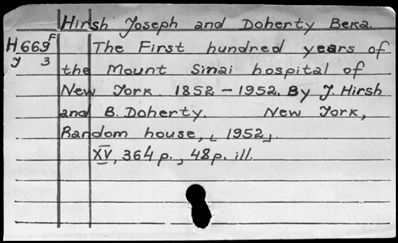 Hirsh Joseph and Doherty Beka.
H669F The First hundred years of
J 3 the Mount Sinai hospital of
New York. 1852-1952. By J. Hirsh
and B. Doherty. New York,
Random house, [1952].
XV, 364 p., 48 p. ill.